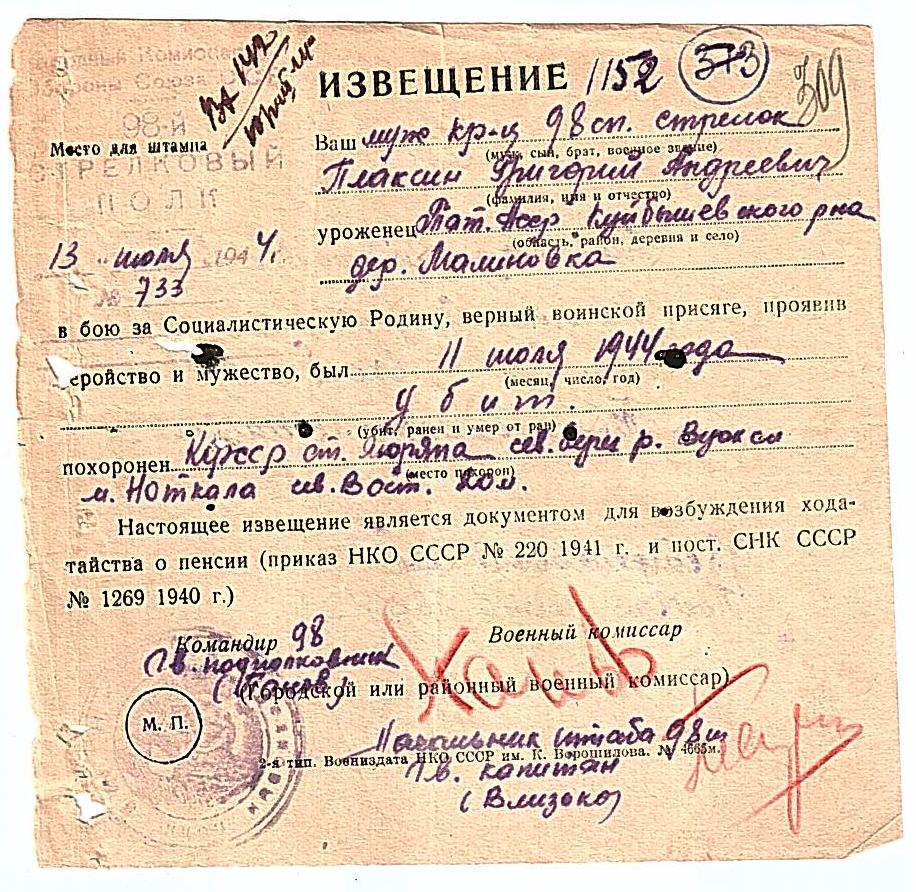 Народный Комиссар
Обороны Союза
98-й
СТРЕЛКОВЫЙ
ПОЛК
Место для штампа
13 " июля 1944.
№ 733
ИЗВЕЩЕНИЕ 1152 373 309
Ваш муж кр-ц 98 сп. стрелок
(муж, сын, брат, военное звание)
Плаксин Григорий Андреевич
(фамилия, имя и отчество)
уроженец Тат. Асср Куйбышевского р-на
(область, район, деревня и село)
дер. Малиновка
в бою за Социалистическую Родину, верный воинской присяге, проявив
геройство и мужество, был 11 июля 1944 года
(месяц, число, год)
убит.
(убит, ранен и умер от ран)
похоронен КФССР ст. сев. бер. р. Вуокси
(место похорон)
м. Ноткала сев. Вост. 20м.
Настоящее извещение является документом для возбуждения хода-
тайства о пенсии (приказ НКО СССР № 220 1941 г. и пост. СНК СССР
№ 1269 1940 г.)
Командир 98 Военный комиссар
Гв. подполковник
(Городской или районный военный комиссар)
М. П.
Начальник штаба 98
2-я тип. Воениздата НКО СССР им. К. Ворошилова. № 4665м.
Гв. капитан
(Близоко)